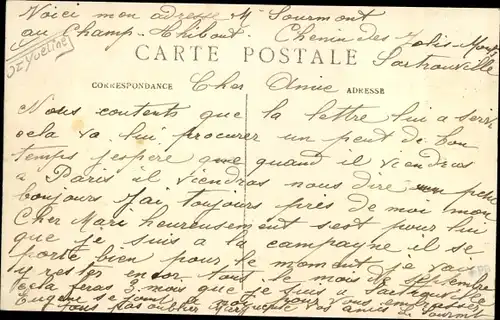 Voici mon adresse Mr Sourmont
au Champ-Thibout Chemin des Jolis Monts
Sartrouville
32 Yveline
CARTE POSTALE
CORRESPONDANCE
ADRESSE
Cher Amie
Nous contents que la lettre lui a servi
cela va lui procurer un peut de bon
temps j'espère que quand il viendras
a Paris il viendras nous dire petit
bonjours j'ai toujours près de moi mon
Cher Mari heureusement sest pour lui
que je suis a la campagne il se
porte bien pour le moment je vais
y rester encor tous le mois de septembre
cela feras 3 mois que je suis a Sartrouville
Eugene se joint a moi pour vous embrasser
tous pas oublier Marguerite vos amis L. Sourmont